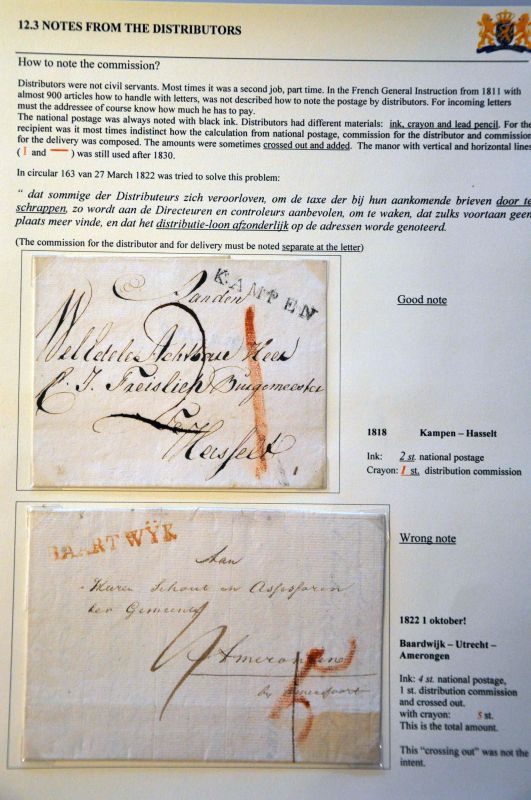 12.3 NOTES FROM THE DISTRIBUTORS
How to note the commission?
Distributors were not civil servants. Most times it was a second job, part time. In the French General Instruction from 1811 with
almost 900 articles how to handle with letters, was not described how to note the postage by distributors. For incoming letters
must the addressee of course know how much he has to pay.
The national postage was always noted with black ink. Distributors had different materials: ink, crayon and lead pencil. For the
recipient was it most times indistinct how the calculation from national postage, commission for the distributor and commission
for the delivery was composed. The amounts were sometimes crossed out and added. The manor with vertical and horizontal lines
( I and — ) was still used after 1830.
In circular 163 van 27 March 1822 was tried to solve this problem:
“ dat sommige der Distributeurs zich veroorloven, om de taxe der bij hun aankomende brieven door te
schrappen, zo wordt aan de Directeuren en controleurs aanbevolen, om te waken, dat zulks voortaan geen
plaats meer vinde, en dat het distributie-loon afzonderlijk op de adressen worde genoteerd.
(The commission for the distributor and for delivery must be noted separate at the letter)
KAMPEN
Good note
Hasselt
1818 Kampen – Hasselt
Ink: 2 st. national postage
Crayon: 1 st. distribution commission
BAARTWŸK
Wrong note
Aan
Heeren Schout en Assessoren
der Gemeente
Amerongen
1822 1 oktober!
Baardwijk – Utrecht –
Amerongen
Ink: 4 st. national postage,
1 st. distribution commission
and crossed out.
with crayon: 5 st.
This is the total amount.
This "crossing out" was not the
intent.